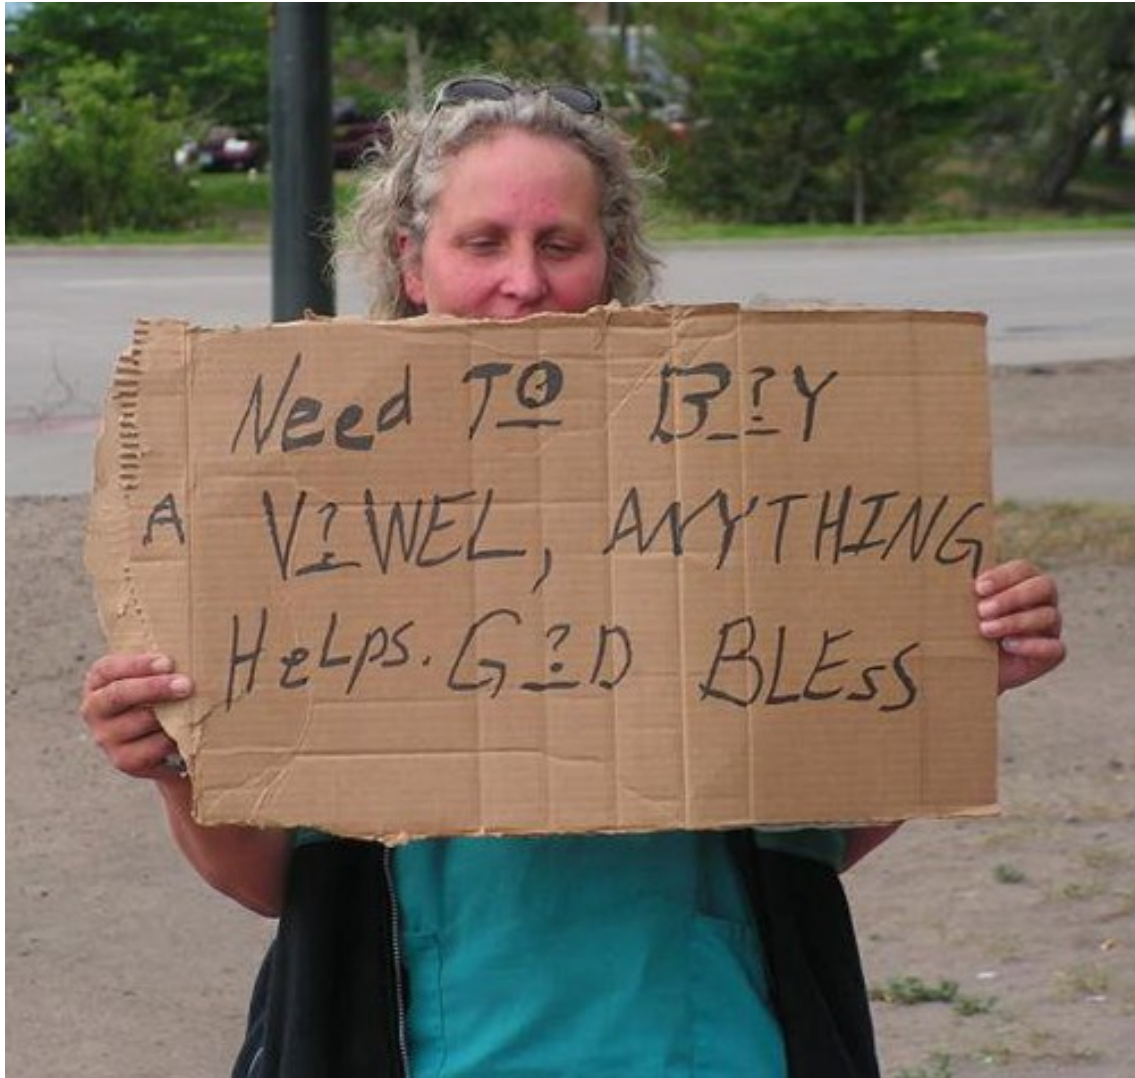 Need TO B?Y
A V?WEL, ANYTHING
HeLps. G?D BLEsS